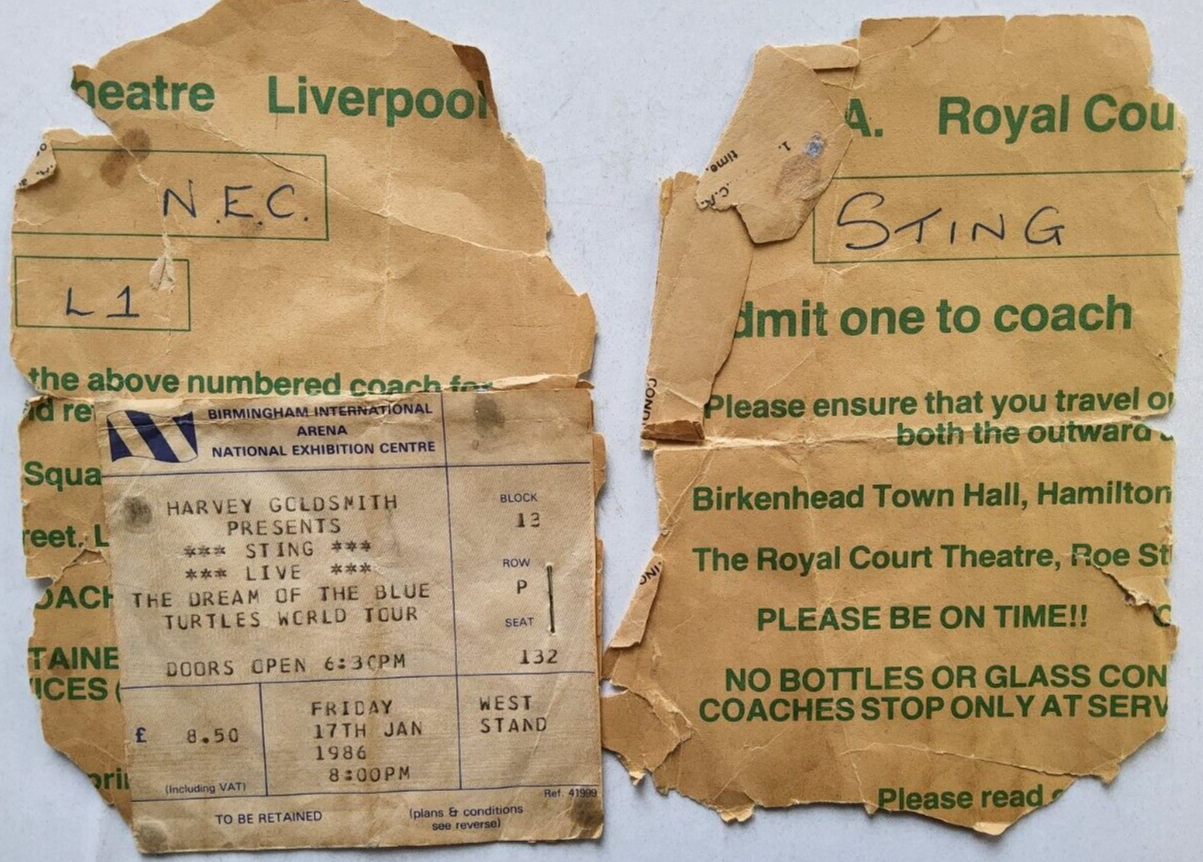 heatre Liverpool
N.E.C.
L1
the above numbered coach for
d re
Squa
reet. L
OACH
TAINE
ICES (
BIRMINGHAM INTERNATIONAL
ARENA
NATIONAL EXHIBITION CENTRE
HARVEY GOLDSMITH
PRESENTS
*** STING ***
*** LIVE ***
THE DREAM OF THE BLUE
TURTLES WORLD TOUR
DOORS OPEN 6:30PM
BLOCK
13
ROW
P
SEAT
132
£ 8.50
(Including VAT)
FRIDAY
17TH JAN
1986
8:00PM
WEST
STAND
Ref. 41999
TO BE RETAINED
(plans & conditions
see reverse)
A. Royal Cou
time.
1.
STING
dmit one to coach
COND
Please ensure that you travel o
both the outward
Birkenhead Town Hall, Hamilton
The Royal Court Theatre, Roe St
PLEASE BE ON TIME!!
NO BOTTLES OR GLASS CON
COACHES STOP ONLY AT SERV
Please read